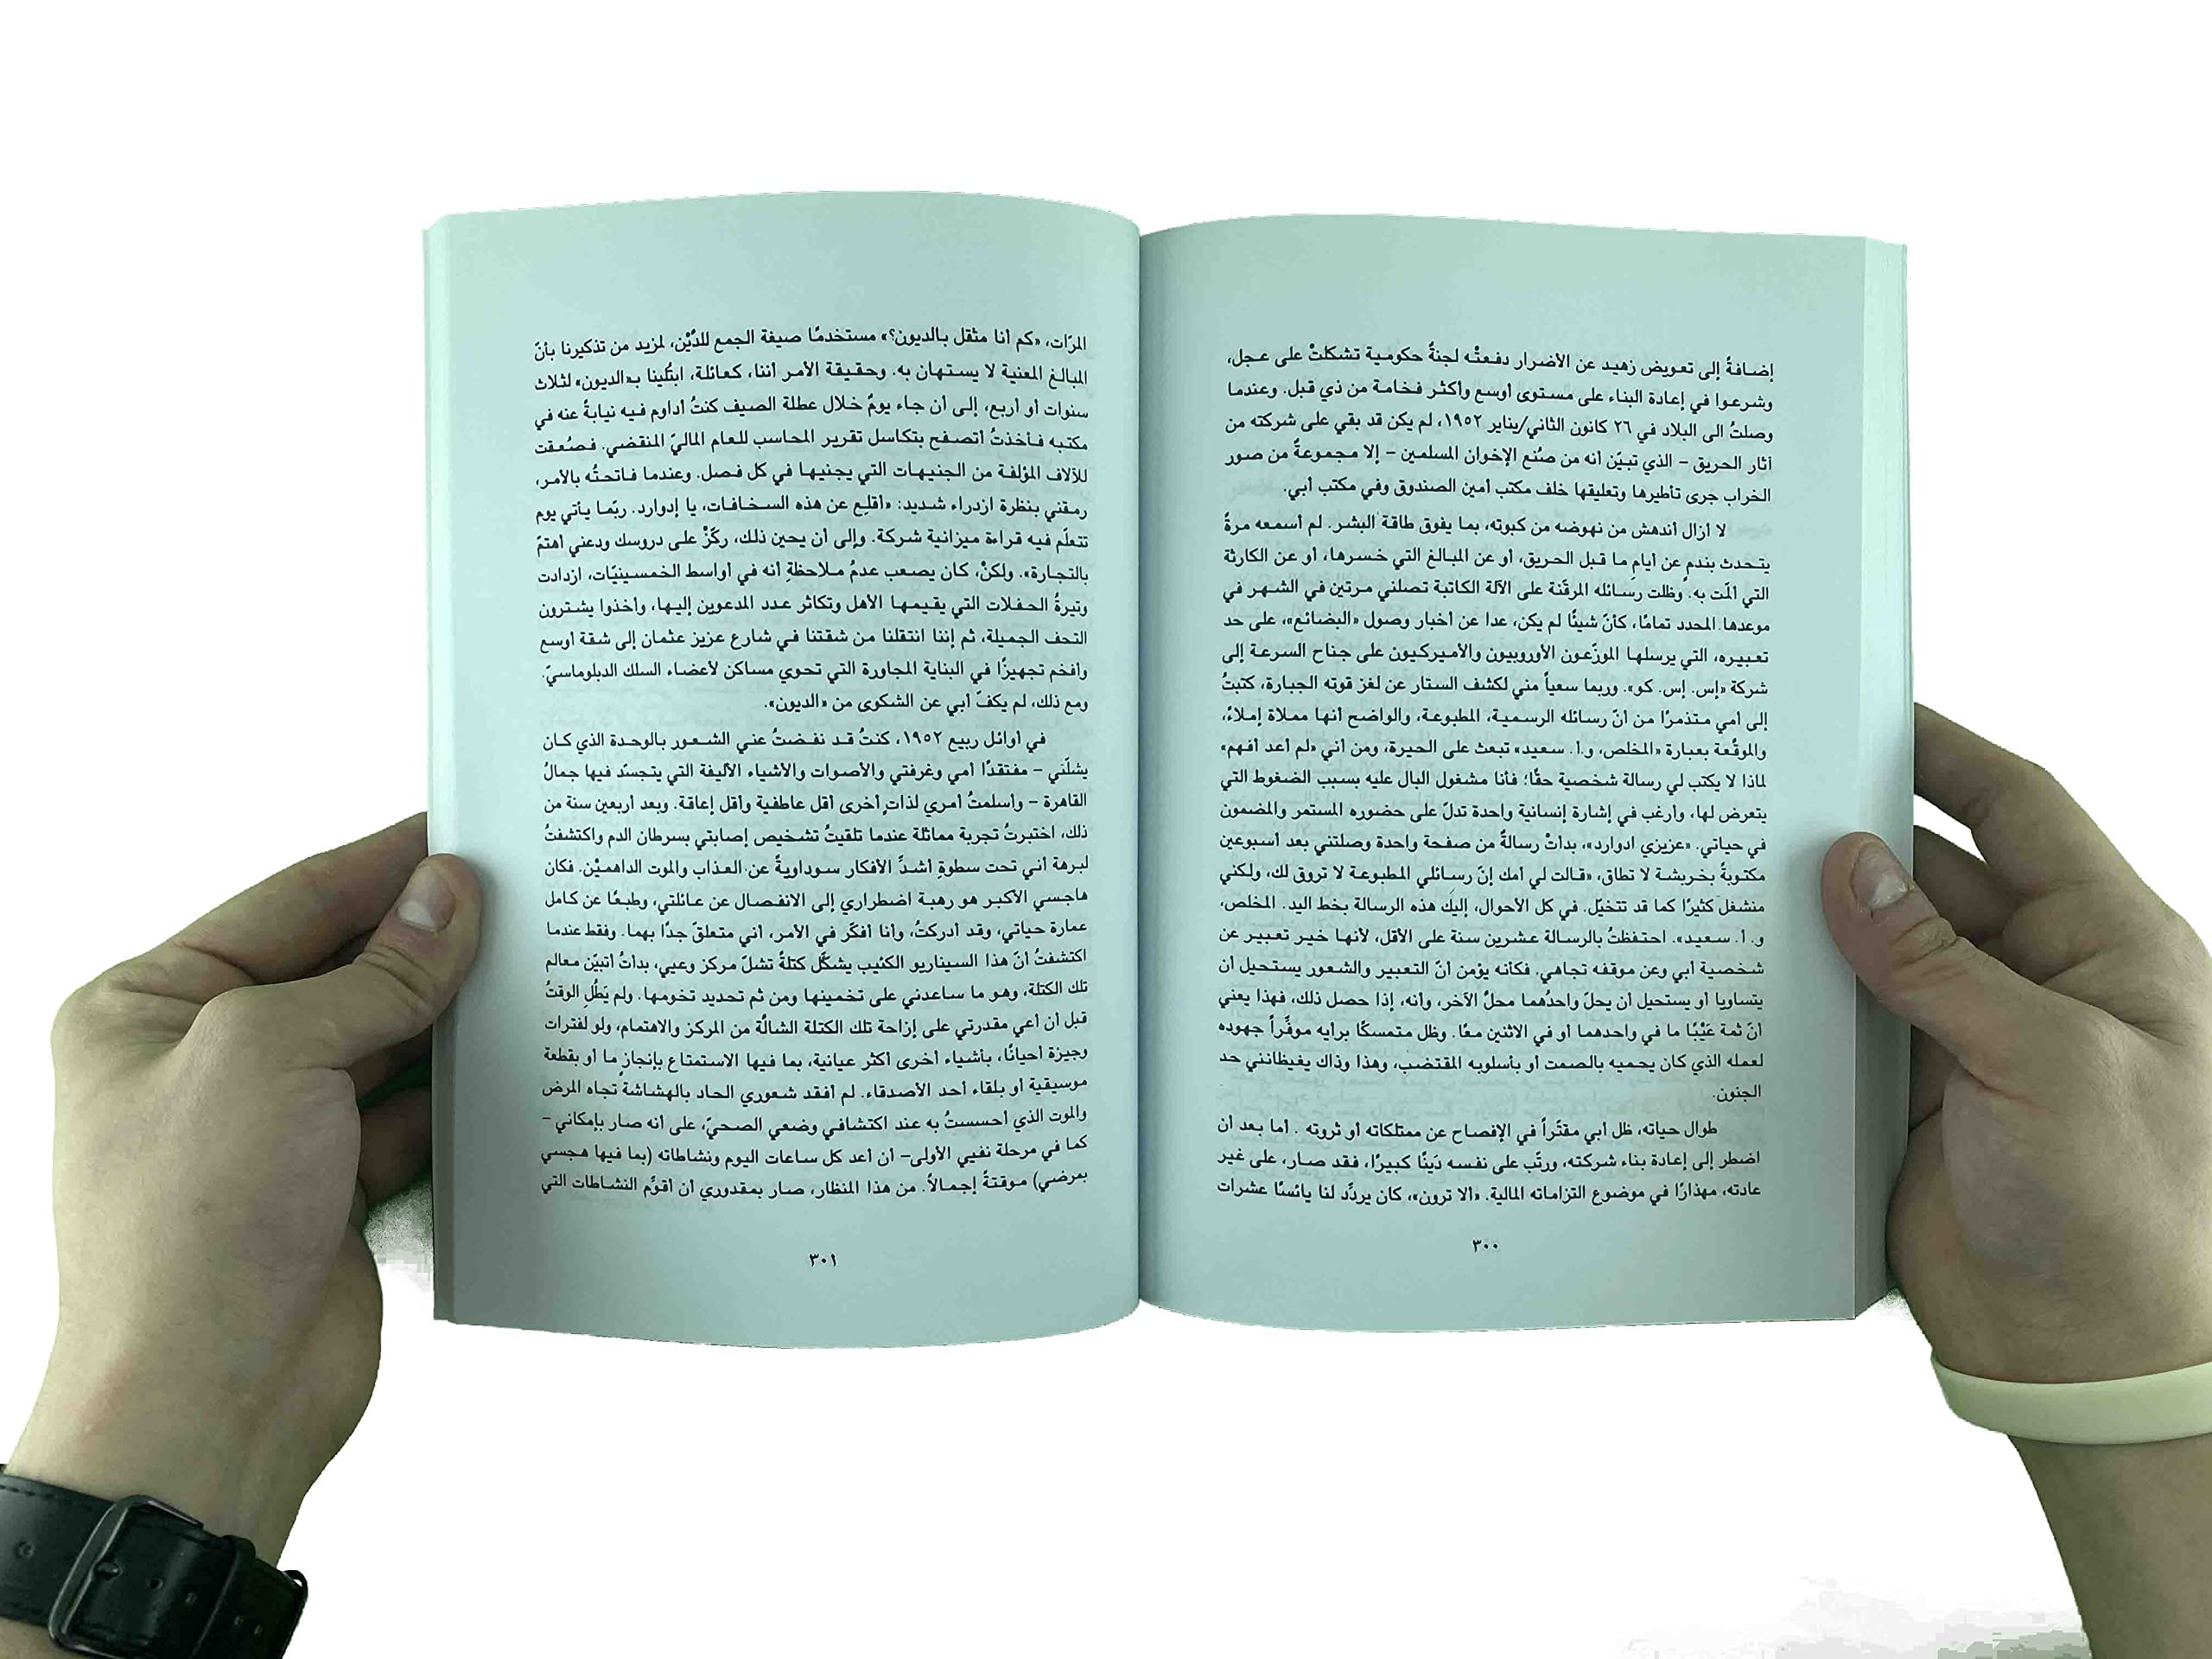 إضافةً إلى تعويض زهيد عن الأضرار دفعتْه لجنةٌ حكومية تشكلتْ على عجل،
وشرعوا في إعادة البناء على مستوى أوسع وأكثر فخامة من ذي قبل. وعندما
وصلتُ الى البلاد في ٢٦ كانون الثاني/يناير ١٩٥٢، لم يكن قد بقي على شركته من
آثار الحريق – الذي تبيّن أنه من صنُع الإخوان المسلمين – إلا مجموعةٌ من صور
الخراب جرى تأطيرها وتعليقها خلف مكتب أمين الصندوق وفي مكتب أبي.
لا أزال أندهش من نهوضه من كبوته، بما يفوق طاقة البشر. لم أسمعه مرةً
يتحدث بندمٍ عن أيامِ ما قبل الحريق، أو عن المبالغ التي خسرها، أو عن الكارثة
التي ألمّت به. وظلت رسائله المرقّنة على الآلة الكاتبة تصلني مرتين في الشهر في
موعدها المحدد تمامًا، كأنّ شيئًا لم يكن، عدا عن أخبار وصول «البضائع»، على حد
تعبيره، التي يرسلها الموزّعون الأوروبيون والأميركيون على جناح السرعة إلى
شركة «إس. إس. كو». وربما سعياً مني لكشف الستار عن لغز قوته الجبارة، كتبتُ
إلى أمي متذمرًا من أنّ رسائله الرسمية، المطبوعة، والواضح أنها مملاة إملاءً،
والموقّعة بعبارة «المخلص، و.أ. سعيد» تبعث على الحيرة، ومن أني «لم أعد أفهم»
لماذا لا يكتب لي رسالة شخصية حقًا؛ فأنا مشغول البال عليه بسبب الضغوط التي
يتعرض لها، وأرغب في إشارة إنسانية واحدة تدلّ على حضوره المستمر والمضمون
في حياتي. «عزيزي ادوارد»، بدأتْ رسالةٌ من صفحة واحدة وصلتني بعد أسبوعين
مكتوبةً بخربشة لا تطاق، «قالت لي أمك إنّ رسائلي المطبوعة لا تروق لك، ولكني
منشغل كثيرًا كما قد تتخيّل. في كل الأحوال، إليك هذه الرسالة بخط اليد. المخلص،
و. أ. سعيد». احتفظتُ بالرسالة عشرين سنة على الأقل، لأنها خير تعبير عن
شخصية أبي وعن موقفه تجاهي. فكأنه يؤمن أنّ التعبير والشعور يستحيل أن
يتساويا أو يستحيل أن يحلّ واحدُهما محلّ الآخر، وأنه، إذا حصل ذلك، فهذا يعني
أنّ ثمة عَيْبًا ما في واحدهما أو في الاثنين معًا. وظل متمسكًا برأيه موفِّراً جهوده
لعمله الذي كان يحميه بالصمت أو بأسلوبه المقتضب، وهذا وذاك يغيظانني حد
الجنون.
طوال حياته، ظل أبي مقتّراً في الإفصاح عن ممتلكاته أو ثروته . أما بعد أن
اضطر إلى إعادة بناء شركته، ورتّب على نفسه دَينًا كبيرًا، فقد صار، على غير
عادته، مهذارًا في موضوع التزاماته المالية. «ألا ترون»، كان يردِّد لنا يائسًا عشرات
٣٠٠
المرّات، «كم أنا مثقل بالديون؟» مستخدمًا صيغة الجمع للدَّيْن، لمزيد من تذكيرنا بأنّ
المبالغ المعنية لا يستهان به. وحقيقة الأمر أننا، كعائلة، ابتُلينا بـ«الديون» لثلاث
سنوات أو أربع، إلى أن جاء يومٌ خلال عطلة الصيف كنتُ أداوم فيه نيابةً عنه في
مكتبه فأخذتُ أتصفح بتكاسل تقرير المحاسب للعام الماليّ المنقضي. فصُعقت
للآلاف المؤلفة من الجنيهات التي يجنيها في كل فصل. وعندما فاتحتُه بالأمر،
رمقني بنظرة ازدراء شديد: «أقلِع عن هذه السخافات، يا إدوارد. ربّما يأتي يوم
تتعلّم فيه قراءة ميزانية شركة. وإلى أن يحين ذلك، ركّزْ على دروسك ودعني أهتمّ
بالتجارة». ولكنْ، كان يصعب عدمُ ملاحظةِ أنه في أواسط الخمسينيّات، ازدادت
وتيرةُ الحفلات التي يقيمها الأهل وتكاثر عدد المدعوين إليها، وأخذوا يشترون
التحف الجميلة، ثم إننا انتقلنا من شقتنا في شارع عزيز عثمان إلى شقة أوسع
وأفخم تجهيزًا في البناية المجاورة التي تحوي مساكن لأعضاء السلك الدبلوماسيّ.
ومع ذلك، لم يكفّ أبي عن الشكوى من «الديون».
في أوائل ربيع ١٩٥٢، كنتُ قد نفضتُ عني الشعور بالوحدة الذي كان
يشلّني – مفتقدًا أمي وغرفتي والأصوات والأشياء الأليفة التي يتجسدّ فيها جمالُ
القاهرة – وأسلمتُ أمري لذاتٍ أخرى أقل عاطفية وأقل إعاقة. وبعد أربعين سنة من
ذلك، اختبرتُ تجربة مماثلة عندما تلقيتُ تشخيص إصابتي بسرطان الدم واكتشفتُ
لبرهة أني تحت سطوةِ أشدِّ الأفكار سوداويةً عن العذاب والموت الداهميْن. فكان
هاجسي الأكبر هو رهبة اضطراري إلى الانفصال عن عائلتي، وطبعًا عن كامل
عمارة حياتي، وقد أدركتُ، وأنا أفكّر في الأمر، أني متعلقّ جدًا بهما. وفقط عندما
اكتشفتُ أنّ هذا السيناريو الكئيب يشكّل كتلةً تشلّ مركز وعيي، بدأتُ أتبيّن معالم
تلك الكتلة، وهو ما ساعدني على تخمينها ومن ثم تحديد تخومها. ولم يَطُلِ الوقتُ
قبل أن أعي مقدرتي على إزاحة تلك الكتلة الشالّة من المركز والاهتمام، ولو لفترات
وجيزة أحيانًا، بأشياء أخرى أكثر عيانية، بما فيها الاستمتاع بإنجازٍ ما أو بقطعة
موسيقية أو بلقاء أحد الأصدقاء. لم أفقد شعوري الحاد بالهشاشة تجاه المرض
والموت الذي أحسستُ به عند اكتشافي وضعي الصحيّ، على أنه صار بإمكاني –
كما في مرحلة نفيي الأولى– أن أعد كل ساعات اليوم ونشاطاته (بما فيها هجسي
بمرضي) موقتةً إجمالاً. من هذا المنظار، صار بمقدوري أن أقوِّم النشاطات التي
٣٠١